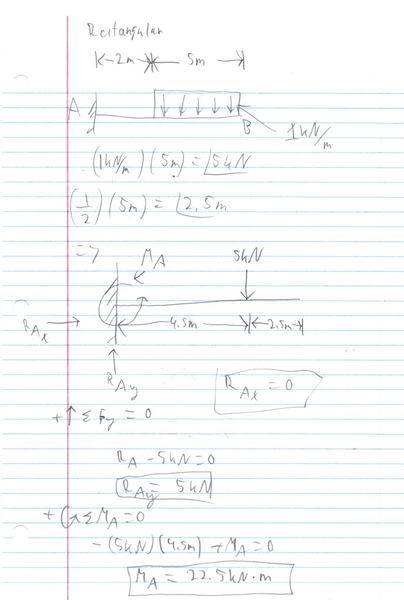 Rectangular
K-2m 5m
A
B
1kN/m
(1kN/m)(5m) = 5kN
(1/2)(5m) = 2.5m
=>
MA 5kN
RAx 4.5m 2.5m
RAy
RAx = 0
+↑ ΣFy = 0
RA - 5kN = 0
RAy = 5kN
+ ΣMA = 0
-(5kN)(4.5m) + MA = 0
MA = 22.5kN·m